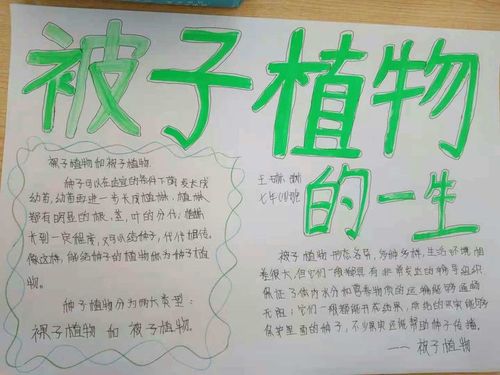 被子植物
的一生
裸子植物和被子植物
种子可以在适宜的条件下萌发长成
幼苗,幼苗再进一步长成植株,植株
都有明显的根、茎、叶的分化,植株
长到一定程度,又可以结种子,代代相传。
像这样,能结种子的植物称为种子植
物。
种子植物分为两大类型:
裸子植物 和 被子植物。
七年
被子植物形态各异,多种多样,生活环境相
差很大,但它们一般都具有非常发达的输导组织
保证了体内水分和营养物质的运输能够通畅
无阻;它们一般都能开花结果,所结的果实能够
保护里面的种子,不少果实还能帮助种子传播。
——被子植物